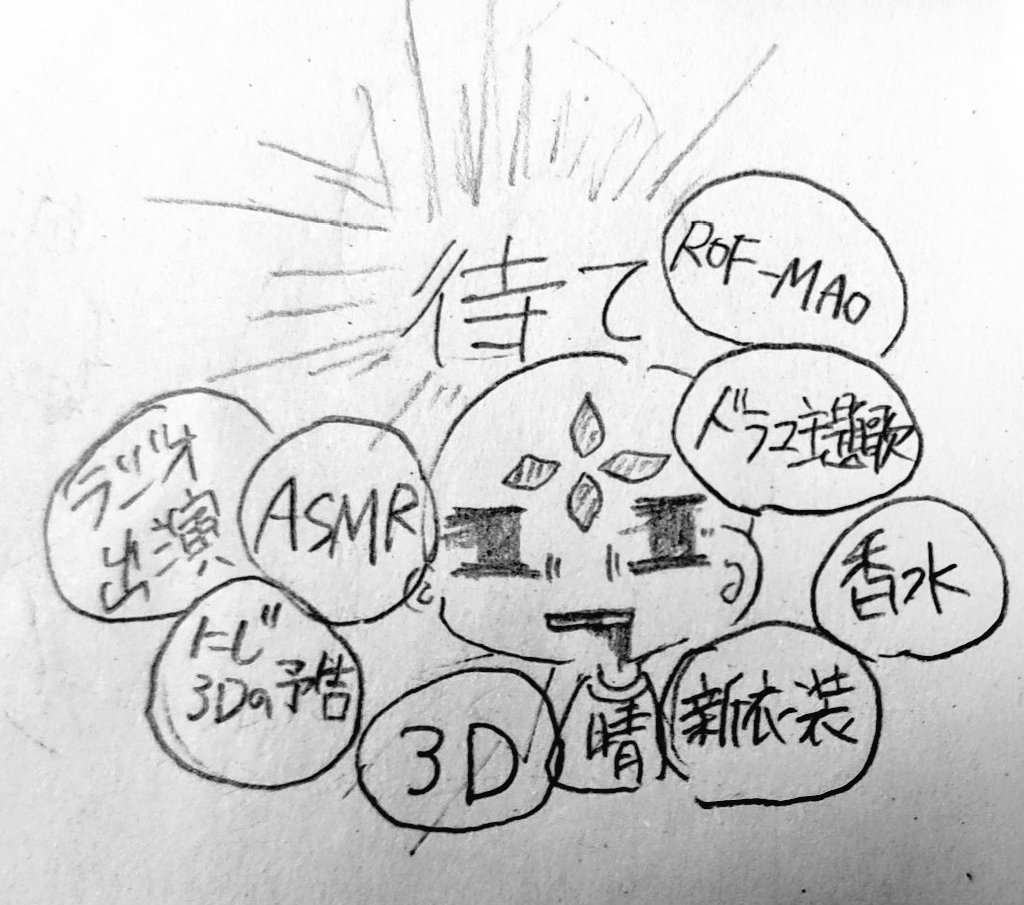 待て
ROF-MAO
ドラマ主題歌
ラジオ
出演
ASMR
香水
にじ
3Dの予告
3D
晴
新衣装